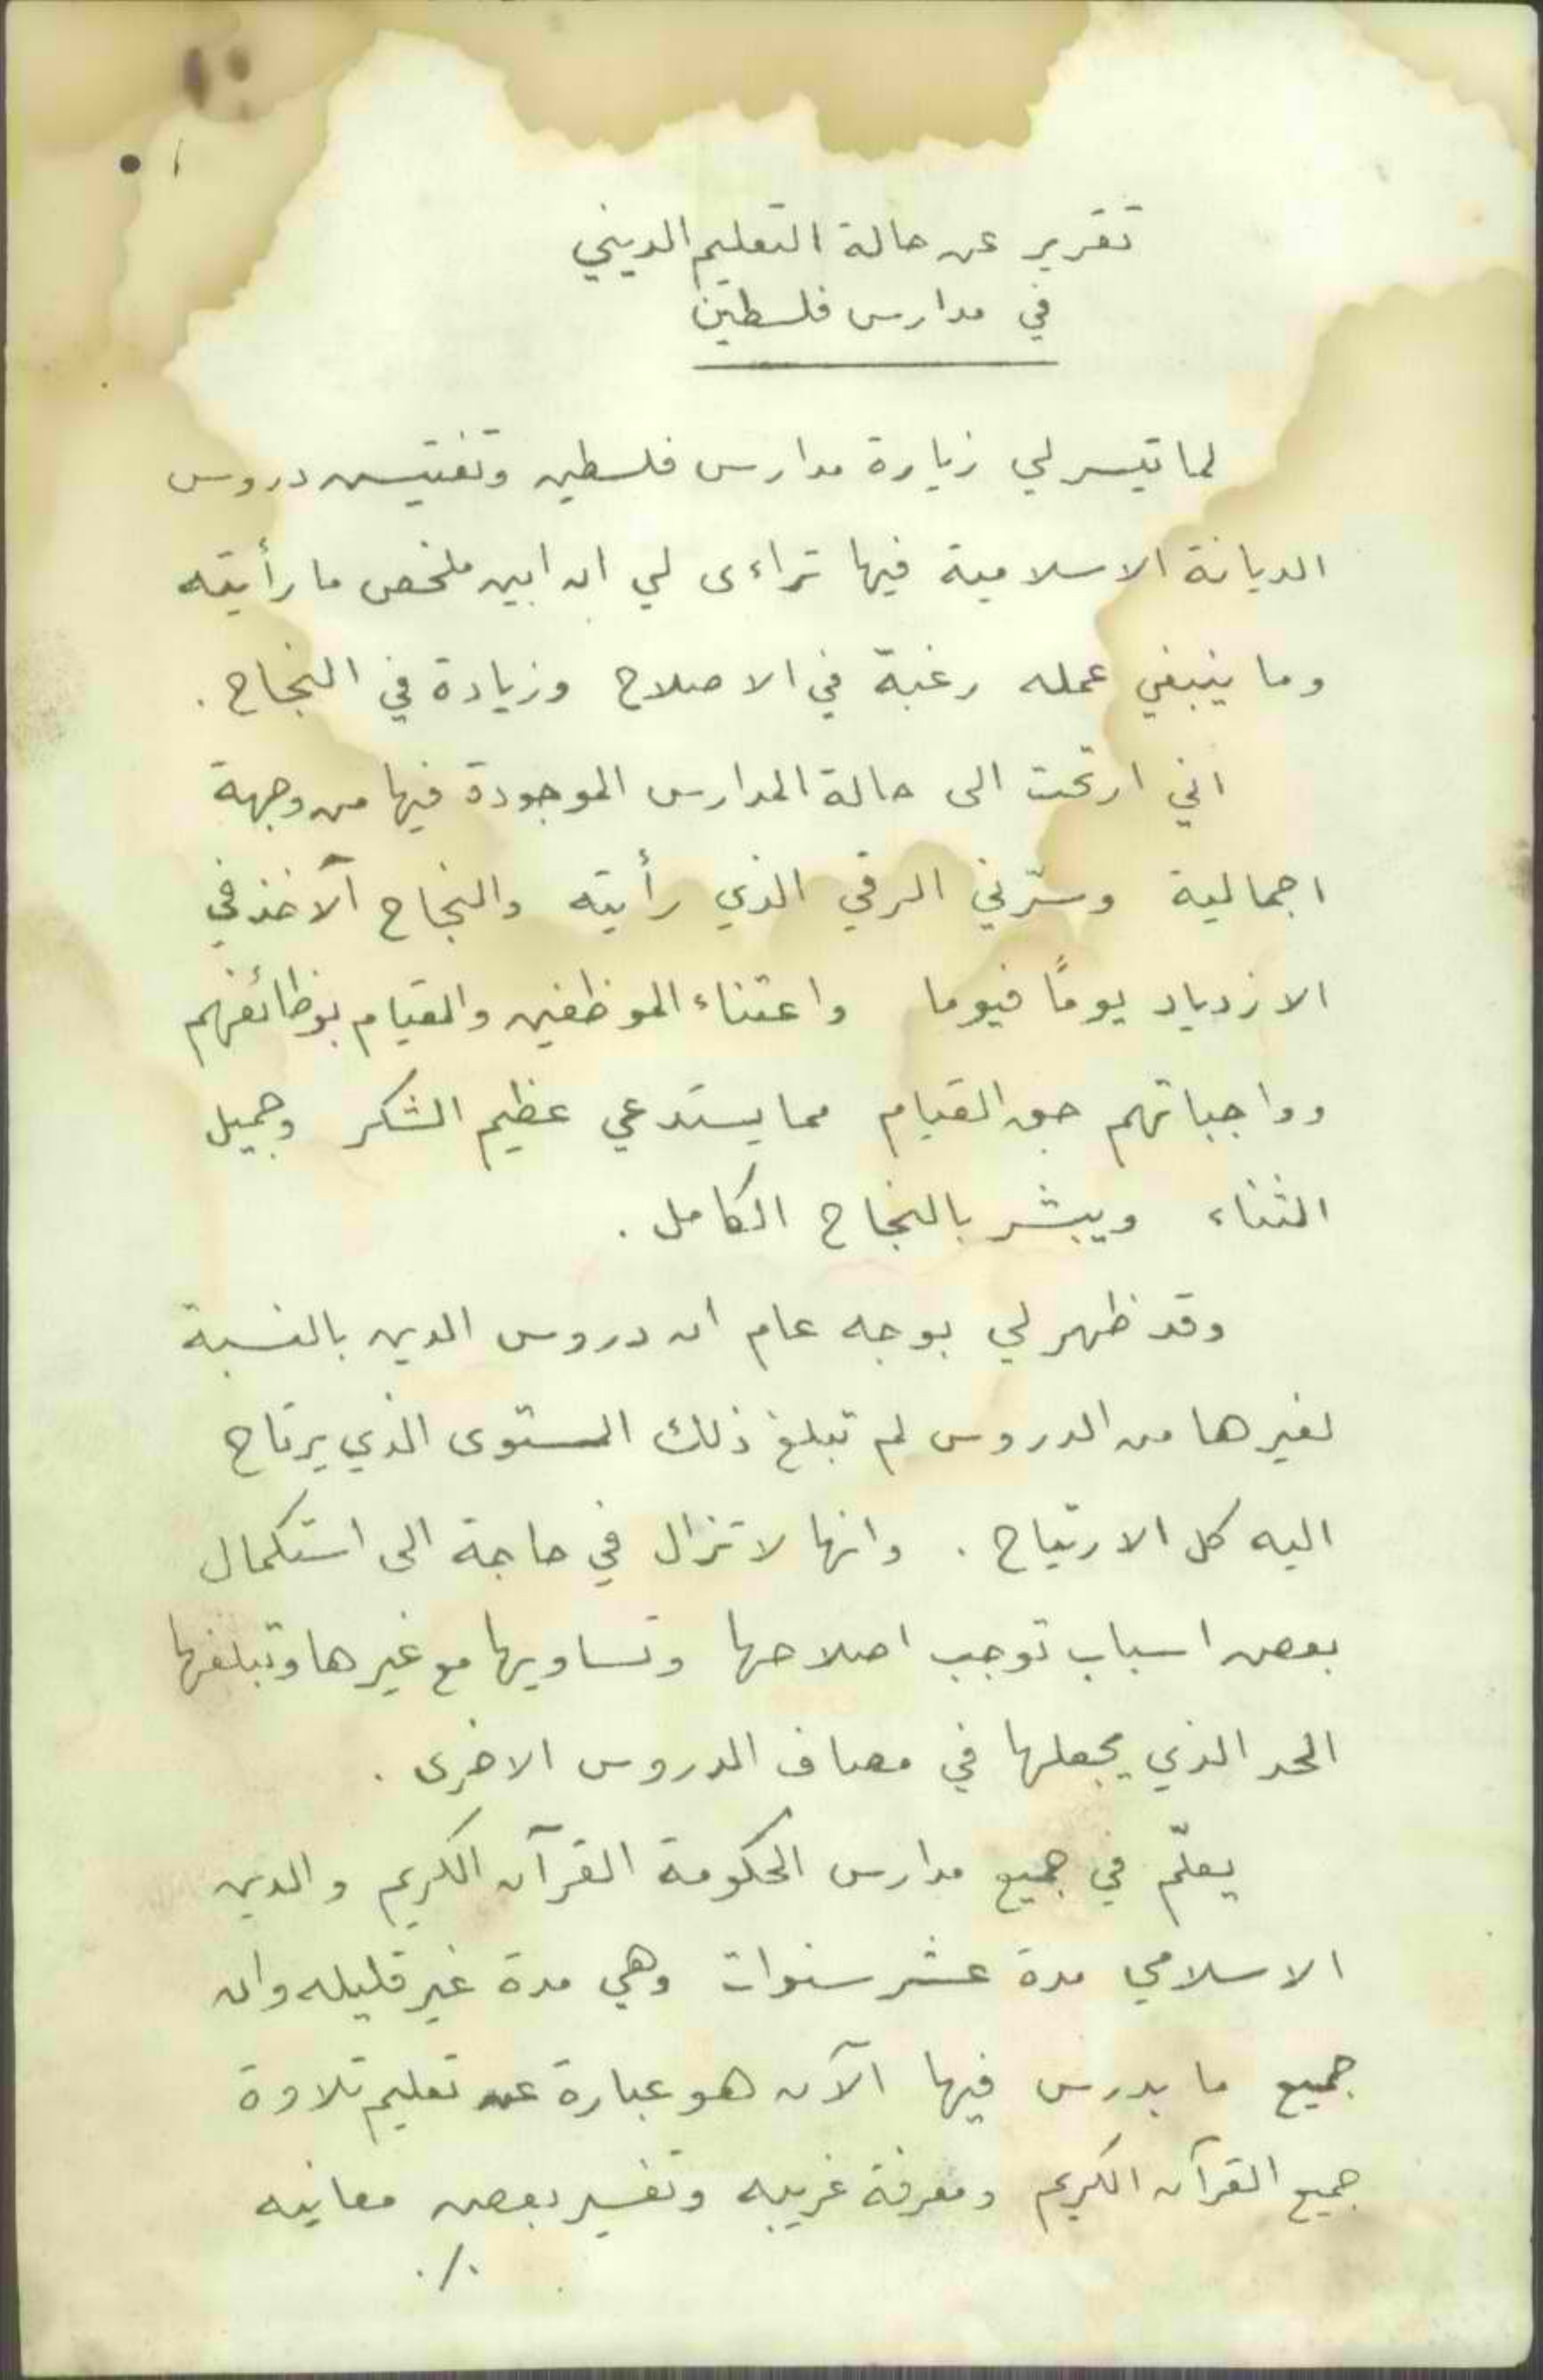 ١
تقرير عن حالة التعليم الديني
في مدارس فلسطين
لما تيسر لي زيارة مدارس فلسطين وتفتيش دروس
الديانة الاسلامية فيها تراءى لي ان ابين ملخص ما رأيته
وما ينبغي عمله رغبة في الاصلاح وزيادة في النجاح .
اني ارتحت الى حالة المدارس الموجودة فيها من وجهة
اجمالية وسرّني الرقي الذي رأيته والنجاح الآخذ في
الازدياد يوماً فيوما واعتناء الموظفين والقيام بوظائفهم
وواجباتهم حق القيام مما يستدعي عظيم الشكر وجميل
الثناء ويبشر بالنجاح الكامل .
وقد ظهر لي بوجه عام ان دروس الدين بالنسبة
لغيرها من الدروس لم تبلغ ذلك المستوى الذي يرتاح
اليه كل الارتياح . وانها لا تزال في حاجة الى استكمال
بعض اسباب توجب اصلاحها وتساويها مع غيرها وتبلغها
الحد الذي يجعلها في مصاف الدروس الاخرى .
يعلّم في جميع مدارس الحكومة القرآن الكريم والدين
الاسلامي مدة عشر سنوات وهي مدة غير قليله وان
جميع ما يدرس فيها الآن هو عبارة عن تعليم تلاوة
جميع القرآن الكريم ومعرفة غريبه وتفسير بعض معانيه
./.